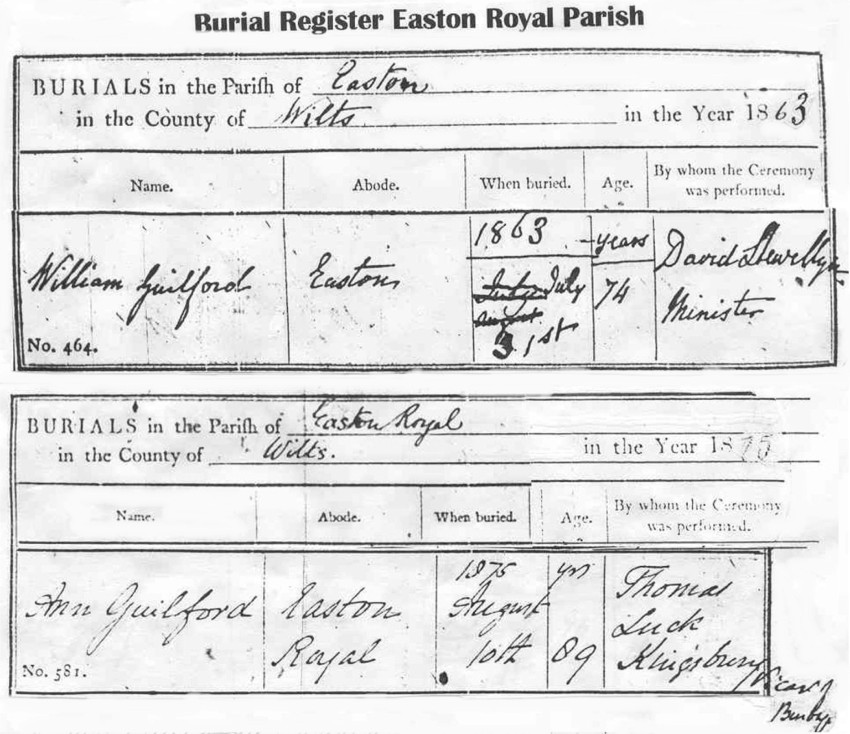 Burial Register Easton Royal Parish
BURIALS in the Parish of Easton
in the County of Wilts in the Year 1863
Name. Abode. When buried. Age. By whom the Ceremony was performed.
1863 years
William Guilford Easton July 74 David Llewellyn
August Minister
31st
No. 464.
BURIALS in the Parish of Easton Royal
in the County of Wilts. in the Year 1875
Name. Abode. When buried. Age. By whom the Ceremony was performed.
1875 yrs Thomas
Ann Guilford Easton August Luck
Royal 10th 89 Kingsbury
No. 581. Vicar of